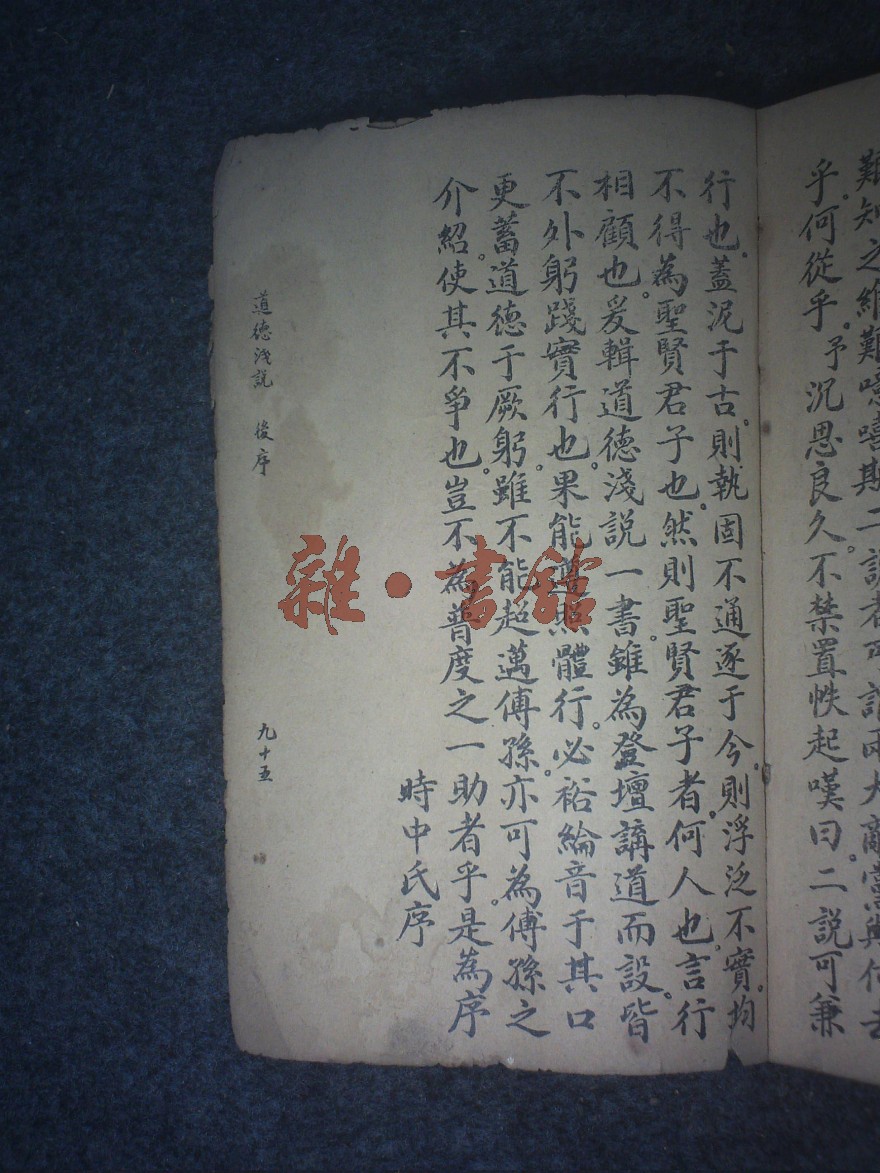 難知之維難噫嘻斯二説者可謂兩大敵黨與何去
乎何從乎。予沉思良久。不禁置帙起嘆曰。二説可兼
行也。蓋泥于古。則執固不通逐于今。則浮泛不實。均
不得為聖賢君子也。然則聖賢君子者。何人也。言行
相顧也。爰輯道德淺説一書。雖為登壇講道而設。皆
不外躬踐實行也。果能遵照體行。必裕綸音于其口
更蓄道德于厥躬。雖不能超邁傅孫。亦可為傅孫之
介紹。使其不爭也。豈不為普度之一助者乎。是為序
時中氏序
道德淺説 後序 九十五
雜·書館